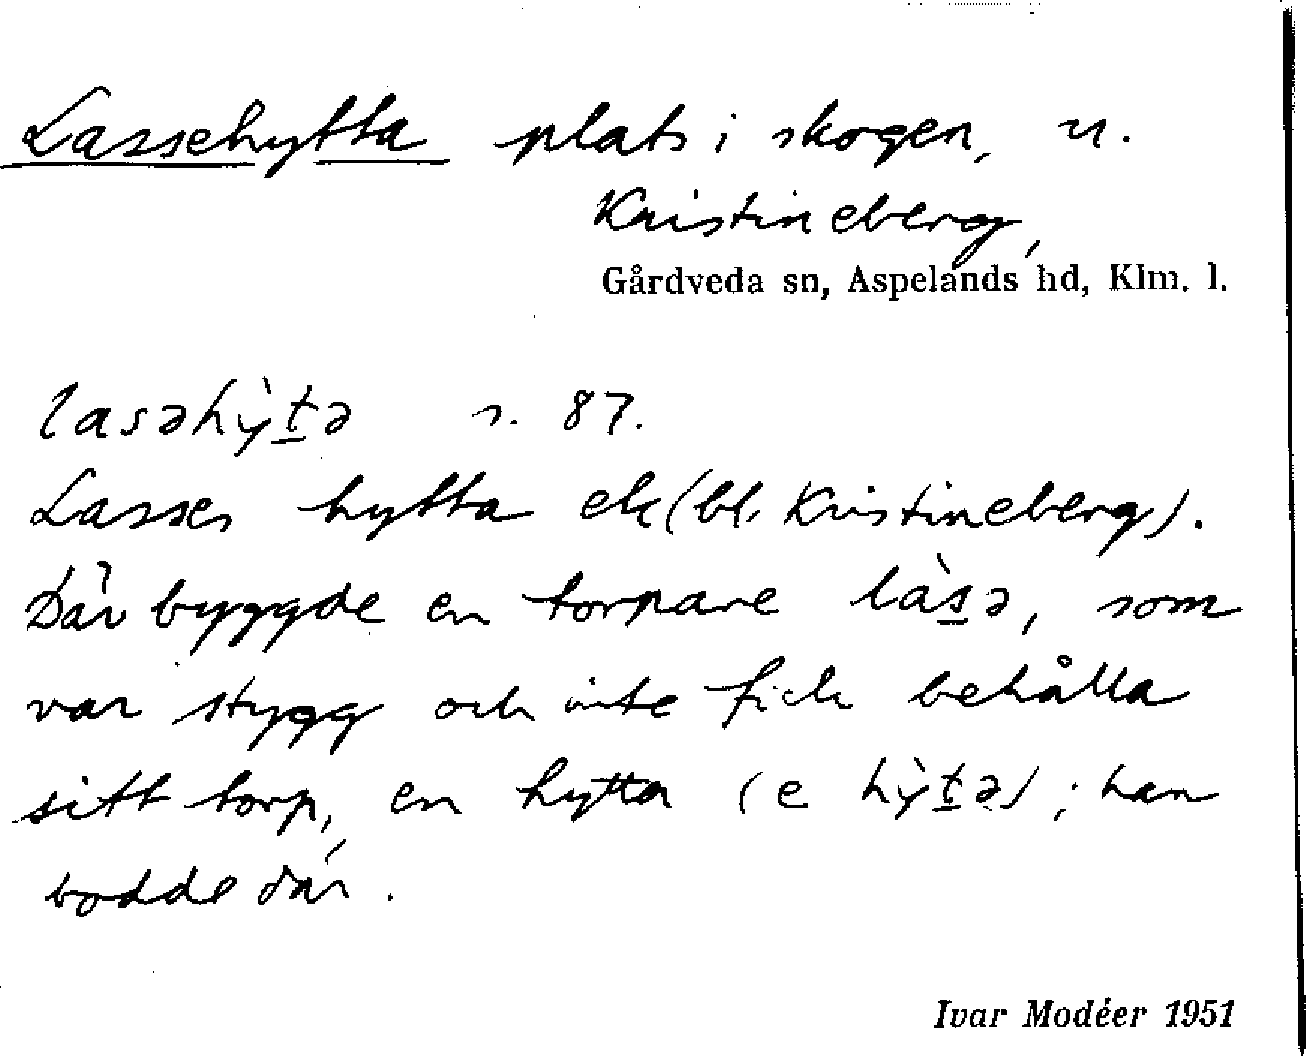 Lassehytta plats i skogen, u.
Kristineberg,
Gårdveda sn, Aspelands hd, Klm. l.
lasəhỳt̲ə s. 87.
Lasses hytta ek (bl. Kristineberg).
Där byggde en torpare làs̲ə, som
var stygg och inte fick behålla
sitt torp, en hytta (e hỳt̲ə); han
bodde där.
Ivar Modéer 1951